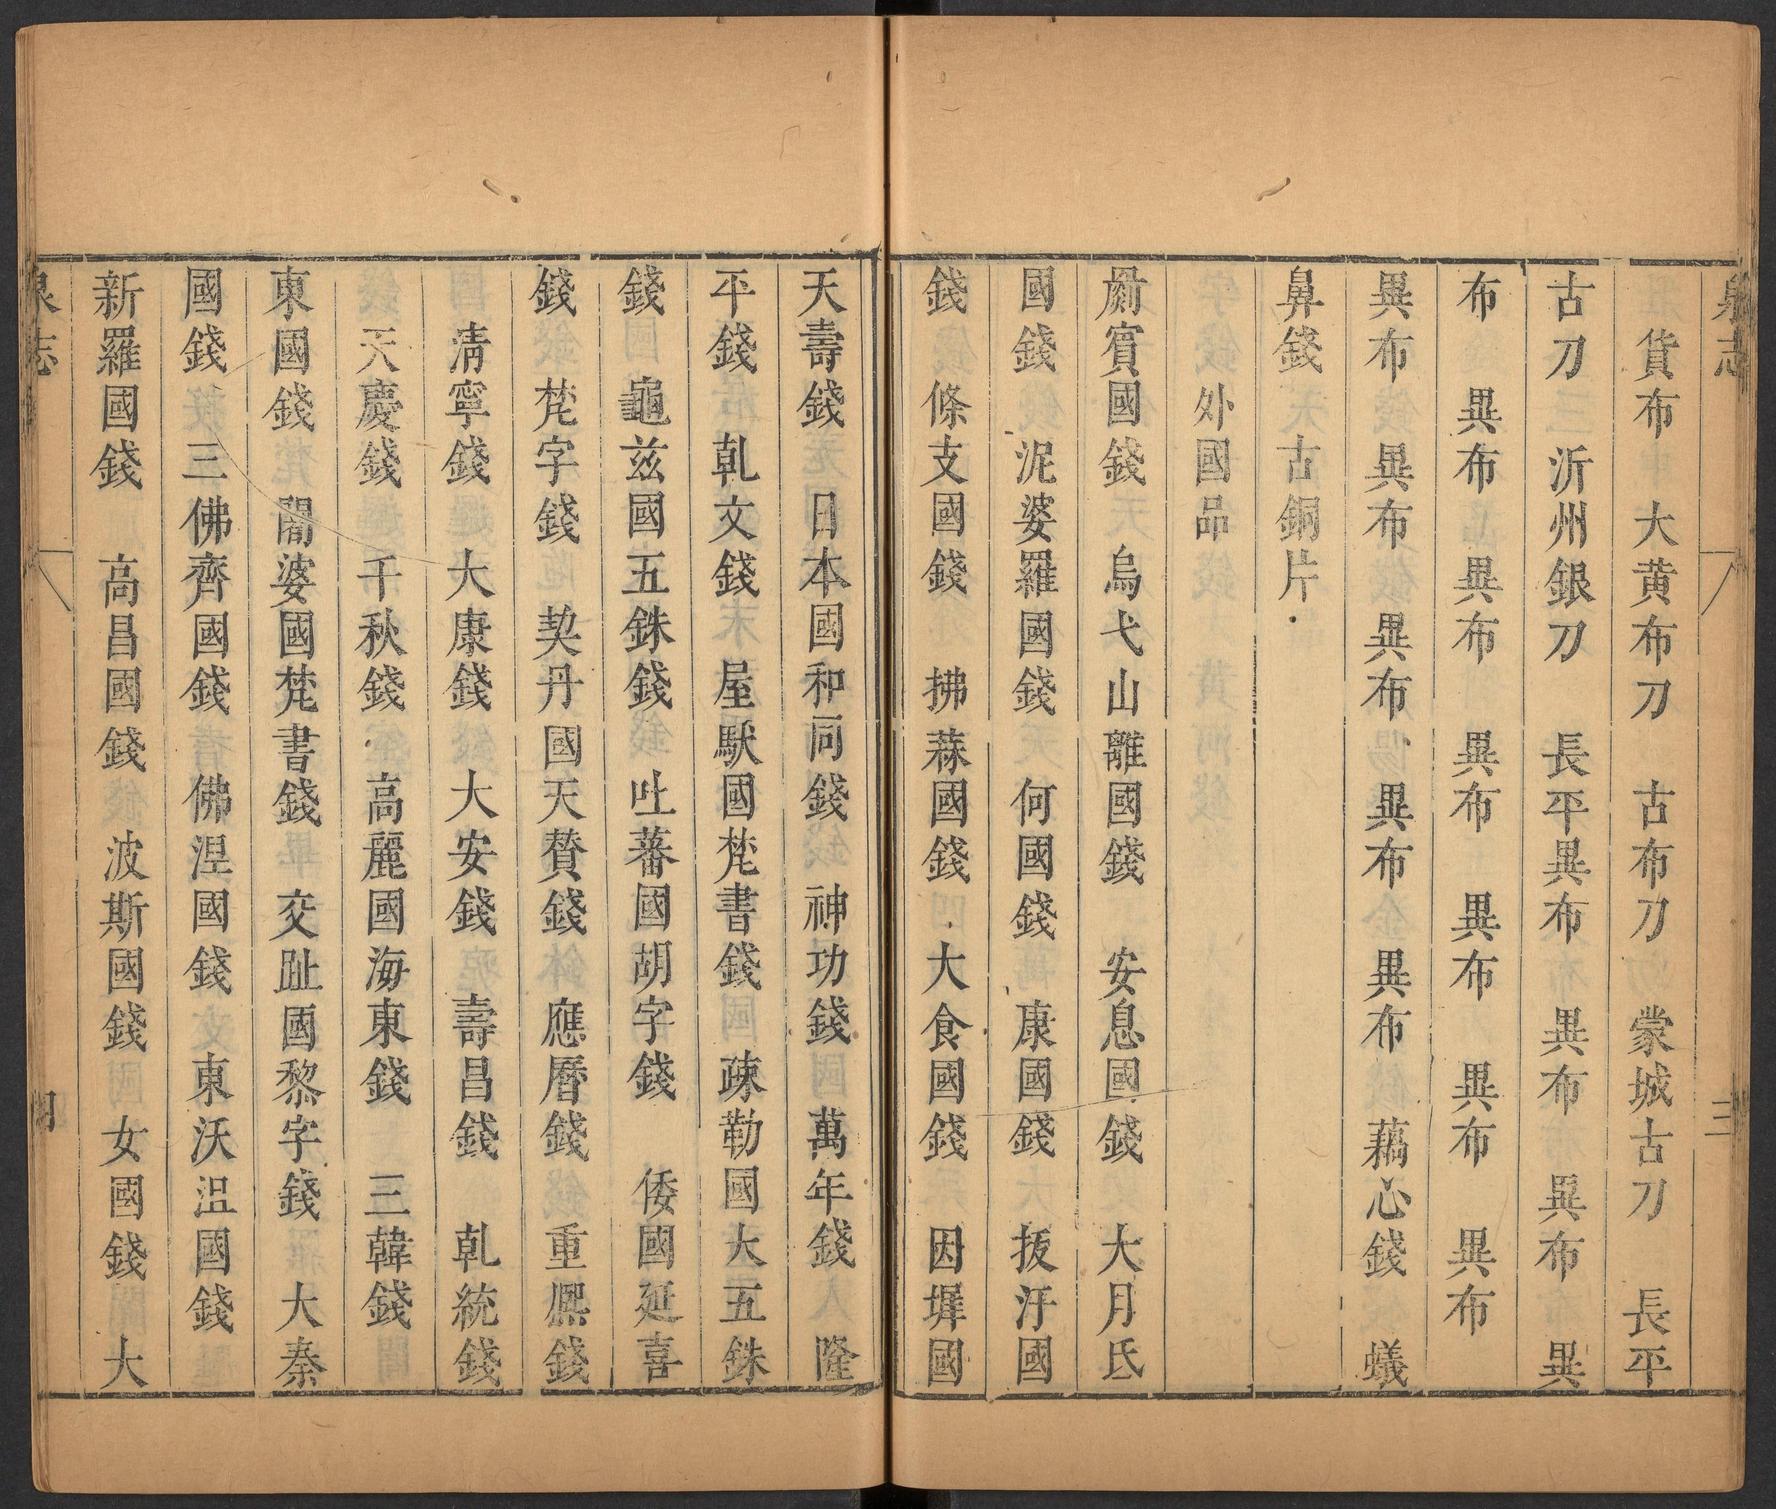 泉志 三
貨布 大黄布刀 古布刀 蒙城古刀 長平
古刀 沂州銀刀 長平異布 異布 異布 異
布 異布 異布 異布 異布 異布 異布
異布 異布 異布 異布 異布 藕心錢 蟻
鼻錢 古銅片
外國品
罽賓國錢 烏弋山離國錢 安息國錢 大月氐
國錢 泥婆羅國錢 何國錢 康國錢 拔汗國
錢 條支國錢 拂菻國錢 大食國錢 因墀國
天壽錢 日本國和同錢 神功錢 萬年錢 隆
平錢 乹文錢 屋馱國梵書錢 疎勒國大五銖
錢 龜兹國五銖錢 吐蕃國胡字錢 倭國延喜
錢 梵字錢 契丹國天賛錢 應曆錢 重熈錢
淸寜錢 大康錢 大安錢 壽昌錢 乹統錢
天慶錢 千秋錢 高麗國海東錢 三韓錢
東國錢 闍婆國梵書錢 交趾國黎字錢 大秦
國錢 三佛齊國錢 佛湼國錢 東沃沮國錢
新羅國錢 高昌國錢 波斯國錢 女國錢 大
泉志 四